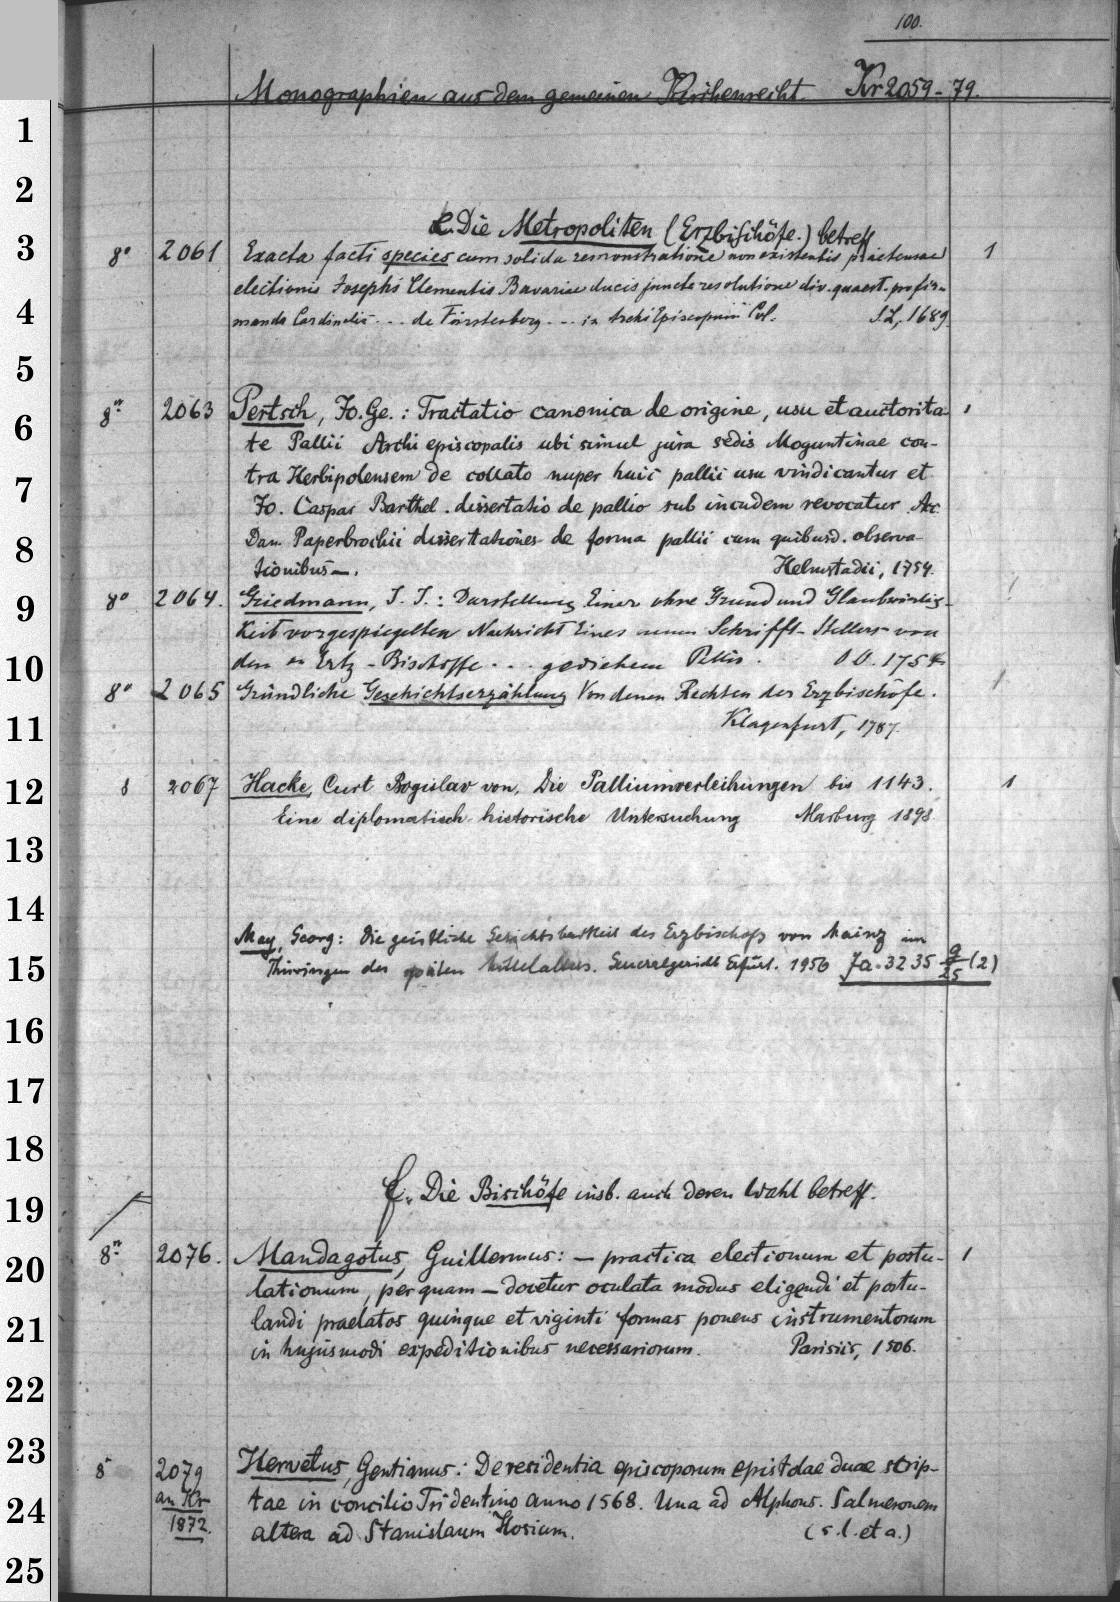 100.
Monographien aus dem gemeinen Kirchenrecht. Kr 2059-79.
1
2
e. Die Metropoliten (Erzbischöfe.) betreff
3 8° 2061 Exacta facti species cum solida remonstratione non existentis praetensae 1
electionis Josephi Clementis Bavariae ducis juncta resolutione div. quaest. pro fir-
4 mando Cardinalis ... de Fürstenberg ... in Archi Episcopum Col. S.L, 1689.
5
8° 2063 Pertsch, Jo. Ge.: Tractatio canonica de origine, usu et auctorita- 1
6 te Pallii Archi episcopalis ubi simul jura sedis Moguntinae con-
7 tra Herbipolensem de collato nuper huic pallii usu vindicantur et
Jo. Caspar Barthel. dissertatio de pallio sub incudem revocatur. Ac
8 Dan Paperbrochii dissertationes de forma pallii cum quibusd. observa-
tionibus -. Helmstadii, 1754.
9 8° 2064. Griedmann, J. J.: Darstellung Einer ohne Grund und Glaubwürdig- 1
keit vorgespiegelten Nachricht Eines neuen Schrifft-Stellers von
10 den Ertz-Bischoffe ... O O. 1754
8° 2065 Gründliche Geschichtserzählung Von denen Rechten der Erzbischöfe. 1
11 Klagenfurt, 1787.
12 8 2067 Hacke, Curt Bogislav von, Die Palliumverleihungen bis 1143. 1
Eine diplomatisch-historische Untersuchung Marburg 1898.
13
14
May, Georg: Die geistliche Gerichtsbarkeit des Erzbischofs von Mainz im
15 Thüringen des späten Mittelalters. Generalgericht Erfurt. 1956 Ja. 3235 g/25 (2)
16
17
18
19 f. Die Bischöfe insb. auch deren Wahl betreff.
8° 2076. Mandagotus, Guillermus: - practica electionum et postu- 1
20 lationum, per quam - docetur oculata modus eligendi et postu-
21 landi praelatos quinque et viginti formas ponens instrumentorum
in hujusmodi expeditionibus necessariorum. Parisiis, 1506.
22
23
8° 2079 Hervetus, Gentianus: De residentia episcoporum epistolae duae scrip-
24 an Kr tae in concilio Tridentino anno 1568. Una ad Alphons. Salmeronem
1872. altera ad Stanislaum Hosium. (s. l. et a.)
25